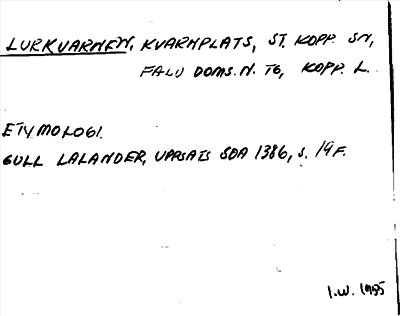 LURKVARNEN, KVARNPLATS, ST. KOPP. SN,
FALU DOMS. N. TG, KOPP. L.
ETYMOLOGI.
GULL LALANDER, UPPSATS SOA 1386, S. 19 F.
I.W. 1985